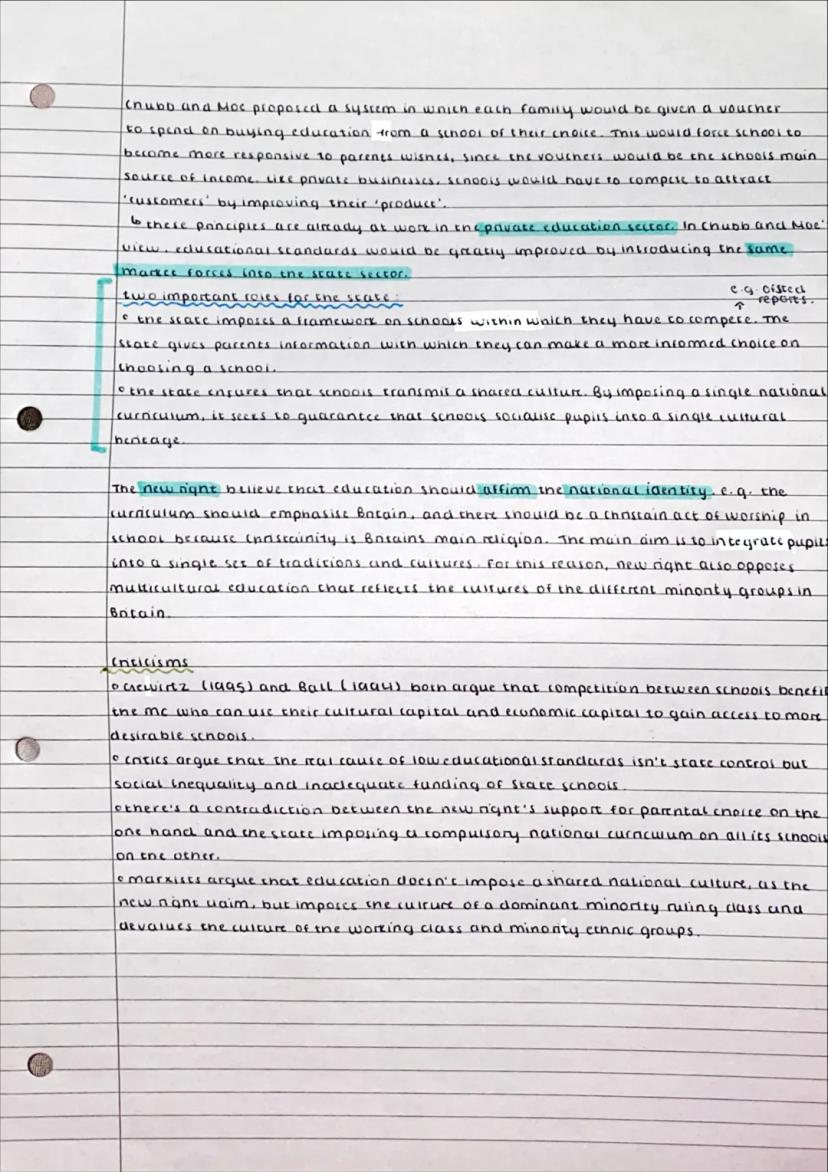 Chubb and Moe proposed a system in which each family would be given a voucher
to spend on buying education from a school of their choice. This would force school to
become more responsive to parents wishes, since the vouchers would be the schools main
source of income. Like private businesses, schools would have to compete to attract
'customers' by improving their 'product'.
↳ these principles are already at work in the private education sector. In Chubb and Moe'
view, educational standards would be greatly improved by introducing the same
market forces into the state sector.
two important roles for the state:
e.g. ofsted
reports.
• the state imposes a framework on schools within which they have to compete. The
state gives parents information with which they can make a more informed choice on
choosing a school.
• the state ensures that schools transmit a shared culture. By imposing a single national
curriculum, it seeks to guarantee that schools socialise pupils into a single cultural
heritage.
The new right believe that education should affirm the national identity, e.g. the
curriculum should emphasise Britain, and there should be a christain act of worship in
school because christainity is Britains main religion. The main aim is to integrate pupils
into a single set of traditions and cultures. For this reason, new right also opposes
multicultural education that reflects the cultures of the different minority groups in
Britain.
Criticisms
• Gewirtz (1995) and Ball (1994) both argue that competition between schools benefit
the mc who can use their cultural capital and economic capital to gain access to more
desirable schools.
• critics argue that the real cause of low educational standards isn't state control but
social inequality and inadequate funding of state schools.
• there's a contradiction between the new right's support for parental choice on the
one hand and the state imposing a compulsory national curriculum on all its schools
on the other.
• marxists argue that education doesn't impose a shared national culture, as the
new right claim, but imposes the culture of a dominant minority ruling class and
devalues the culture of the working class and minority ethnic groups.